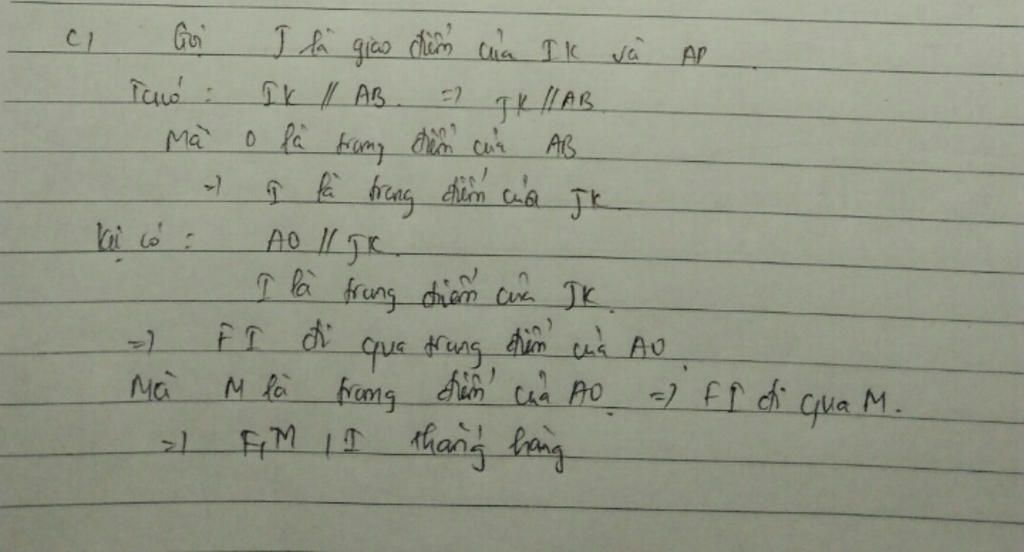 c, Gọi J là giao điểm của IK và AP.
Ta có : IK // AB. => JK // AB
Mà O là trung điểm của AB
=> I là trung điểm của JK.
Lại có : AO // JK.
I là trung điểm của JK.
=> FI đi qua trung điểm của AO.
Mà M là trung điểm của AO. => FI đi qua M.
=> F, M, I thẳng hàng